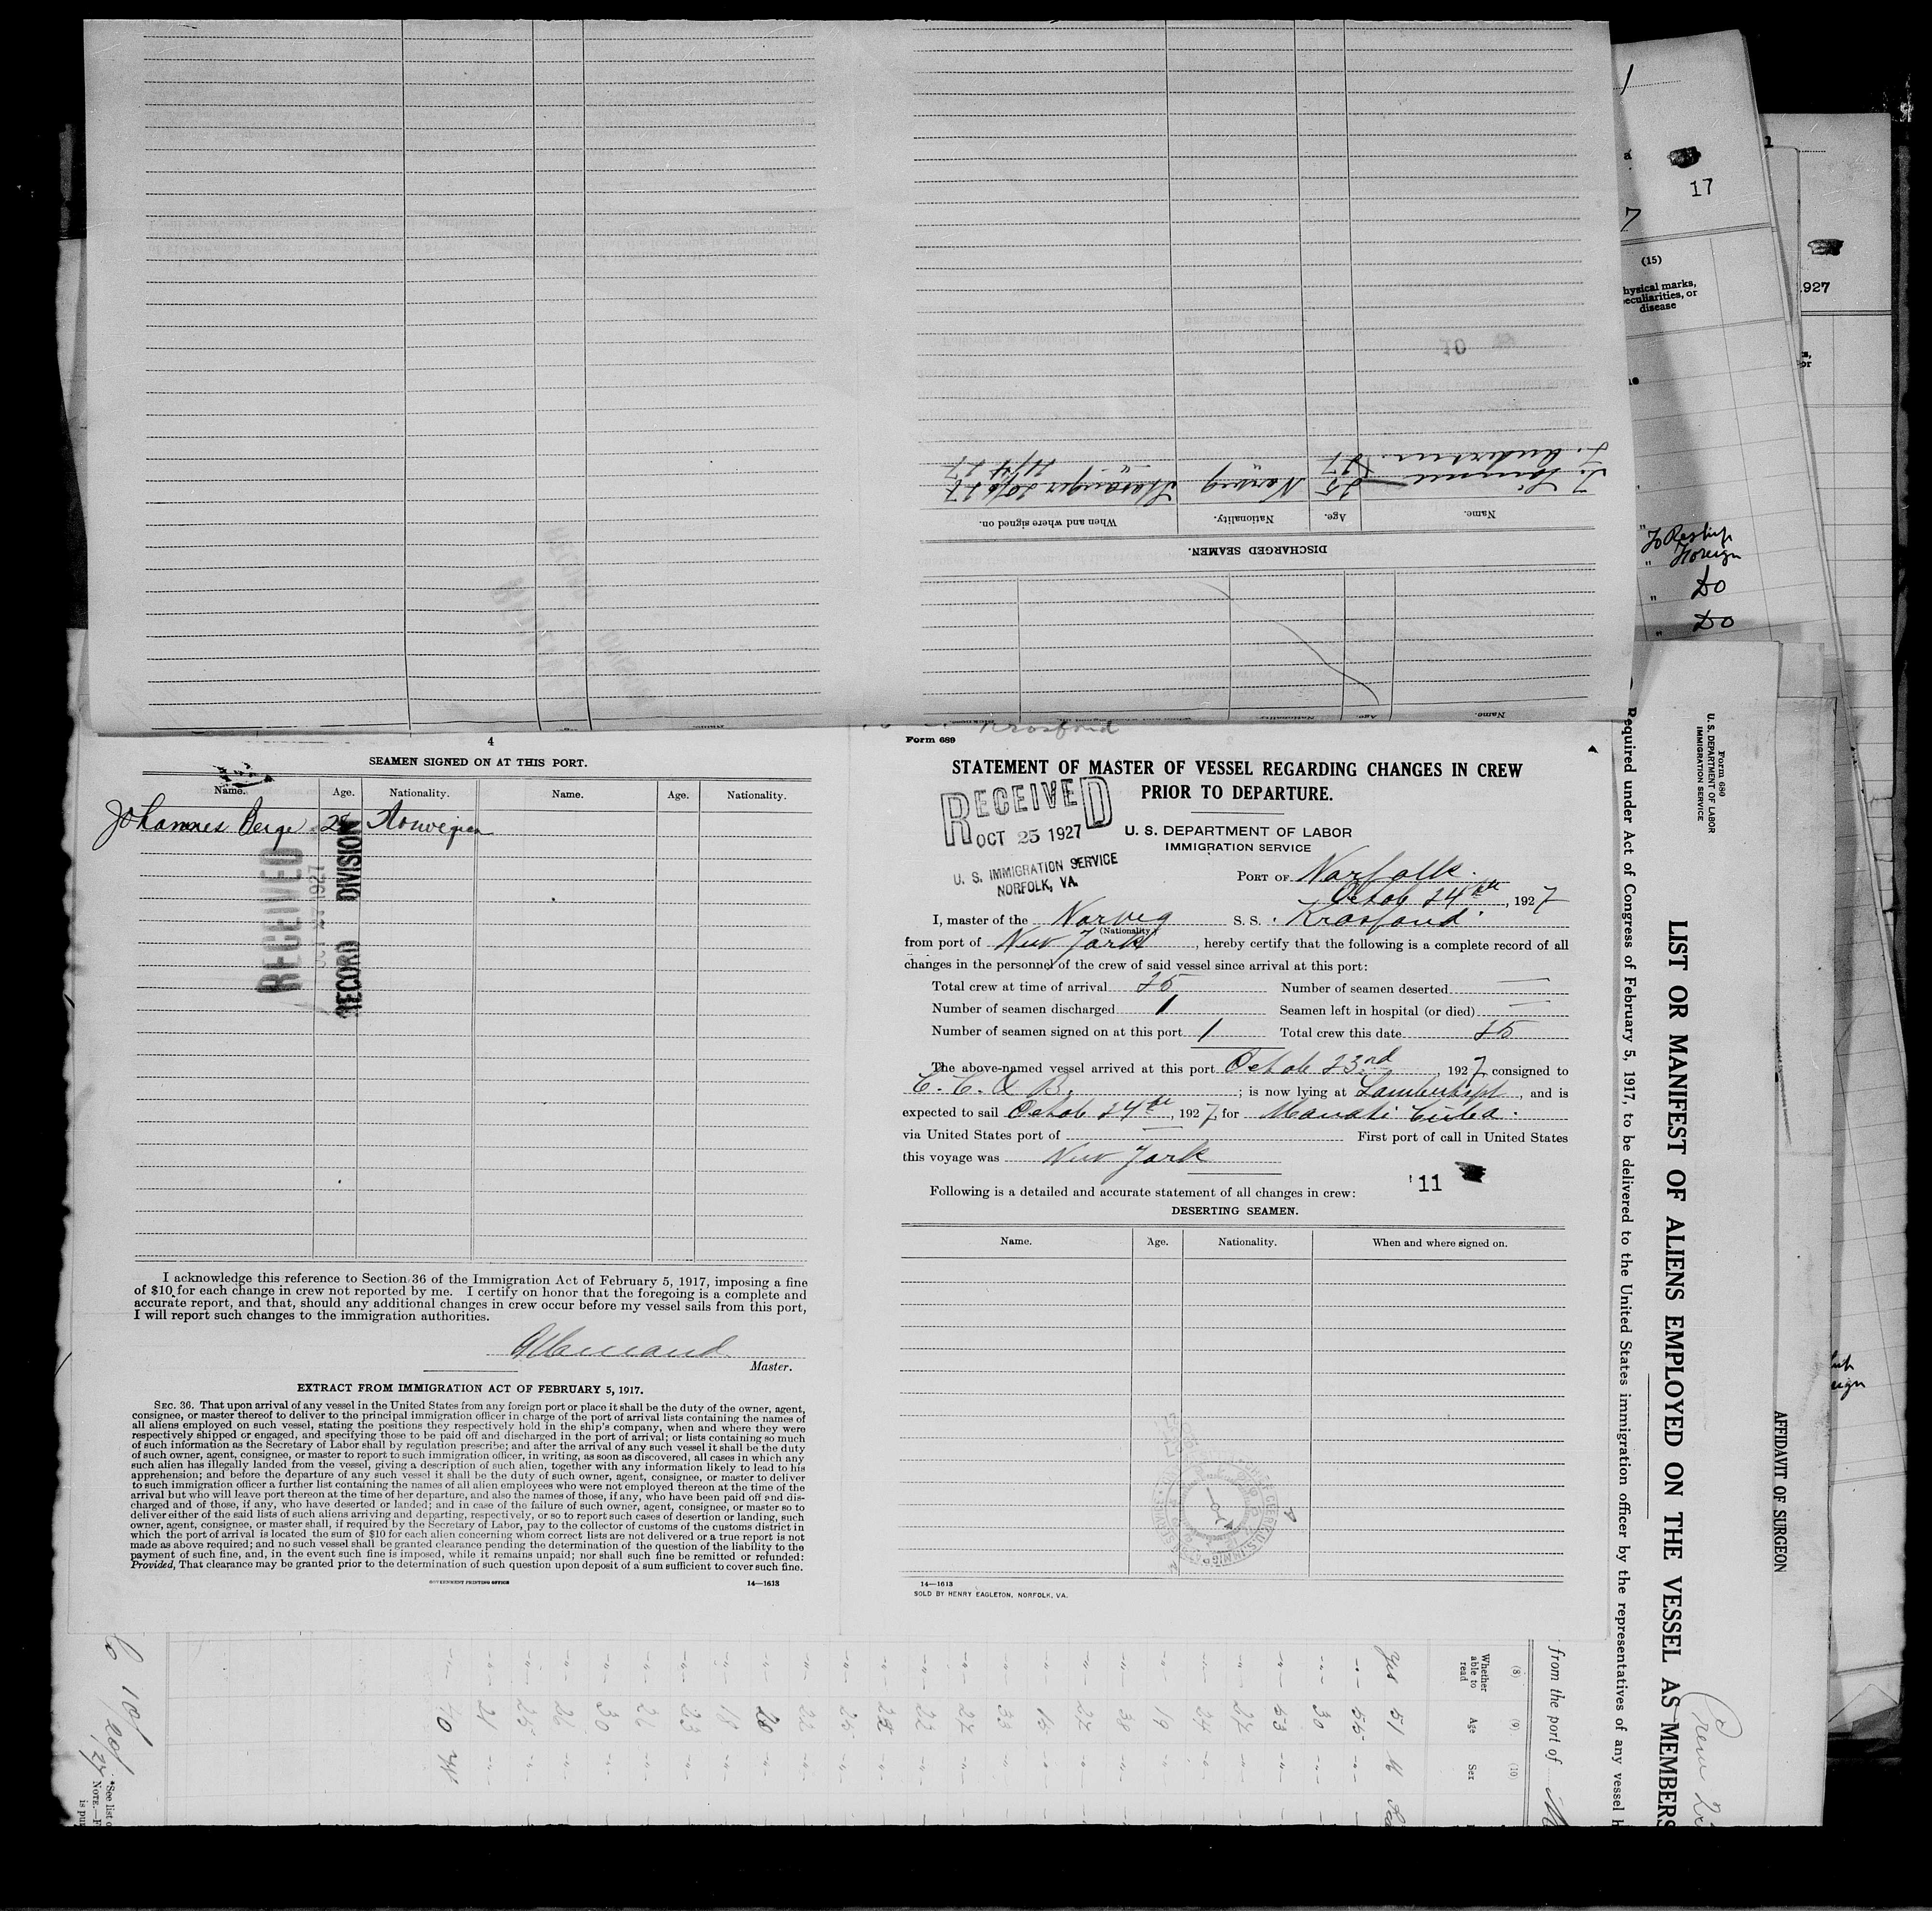 DISCHARGED SEAMEN.
Name. Age. Nationality. When and where signed on.
25 Norweg Stavanger
Andersen 27
Name. Age. Nationality.
17
7
(15)
hysical marks,
eculiarities, or
disease
.927
To Reship
" Foreign
" Do
" Do
4
SEAMEN SIGNED ON AT THIS PORT.
Name. Age. Nationality. Name. Age. Nationality.
Johannes Berge Norwegian
RECEIVED
1927
RECORD DIVISION
I acknowledge this reference to Section 36 of the Immigration Act of February 5, 1917, imposing a fine
of $10 for each change in crew not reported by me. I certify on honor that the foregoing is a complete and
accurate report, and that, should any additional changes in crew occur before my vessel sails from this port,
I will report such changes to the immigration authorities.
Master.
EXTRACT FROM IMMIGRATION ACT OF FEBRUARY 5, 1917.
SEC. 36. That upon arrival of any vessel in the United States from any foreign port or place it shall be the duty of the owner, agent,
consignee, or master thereof to deliver to the principal immigration officer in charge of the port of arrival lists containing the names of
all aliens employed on such vessel, stating the positions they respectively hold in the ship's company, when and where they were
respectively shipped or engaged, and specifying those to be paid off and discharged in the port of arrival; or lists containing so much
of such information as the Secretary of Labor shall by regulation prescribe; and after the arrival of any such vessel it shall be the duty
of such owner, agent, consignee, or master to report to such immigration officer, in writing, as soon as discovered, all cases in which any
such alien has illegally landed from the vessel, giving a description of such alien, together with any information likely to lead to his
apprehension; and before the departure of any such vessel it shall be the duty of such owner, agent, consignee, or master to deliver
to such immigration officer a further list containing the names of all alien employees who were not employed thereon at the time of the
arrival but who will leave port thereon at the time of her departure, and also the names of those, if any, who have been paid off and dis-
charged and of those, if any, who have deserted or landed; and in case of the failure of such owner, agent, consignee, or master so to
deliver either of the said lists of such aliens arriving and departing, respectively, or so to report such cases of desertion or landing, such
owner, agent, consignee, or master shall, if required by the Secretary of Labor, pay to the collector of customs of the customs district in
which the port of arrival is located the sum of $10 for each alien concerning whom correct lists are not delivered or a true report is not
made as above required; and no such vessel shall be granted clearance pending the determination of the question of the liability to the
payment of such fine, and, in the event such fine is imposed, while it remains unpaid; nor shall such fine be remitted or refunded:
Provided, That clearance may be granted prior to the determination of such question upon deposit of a sum sufficient to cover such fine.
GOVERNMENT PRINTING OFFICE 14—1613
Form 689
STATEMENT OF MASTER OF VESSEL REGARDING CHANGES IN CREW
PRIOR TO DEPARTURE.
RECEIVED
OCT 25 1927
U. S. IMMIGRATION SERVICE
NORFOLK, VA.
U. S. DEPARTMENT OF LABOR
IMMIGRATION SERVICE
PORT OF Norfolk.
Octob 24th, 1927
I, master of the Norweg S. S. Krosfond
(Nationality)
from port of New York, hereby certify that the following is a complete record of all
changes in the personnel of the crew of said vessel since arrival at this port:
Total crew at time of arrival 25 Number of seamen deserted —
Number of seamen discharged 1 Seamen left in hospital (or died) —
Number of seamen signed on at this port 1 Total crew this date 25
The above-named vessel arrived at this port Octob 23rd, 1927, consigned to
C. C. & B.; is now lying at Lambertspt, and is
expected to sail Octob 24th, 1927, for Manati Cuba.
via United States port of — First port of call in United States
this voyage was New York
Following is a detailed and accurate statement of all changes in crew: 11
DESERTING SEAMEN.
Name. Age. Nationality. When and where signed on.
14—1613
SOLD BY HENRY EAGLETON, NORFOLK, VA.
Form 680
U. S. DEPARTMENT OF LABOR
IMMIGRATION SERVICE
LIST OR MANIFEST OF ALIENS EMPLOYED ON THE VESSEL AS MEMBERS
Required under Act of Congress of February 5, 1917, to be delivered to the United States immigration officer by the representatives of any vessel h
AFFIDAVIT OF SURGEON
from the port of
(8) (9) (10)
Whether able to read Age Sex
Yes 51 M
55
30
53
27
24
19
38
27
15
33
27
22
25
22
20
18
23
26
30
26
25
21
*See list o
NOTE.—F
is pu